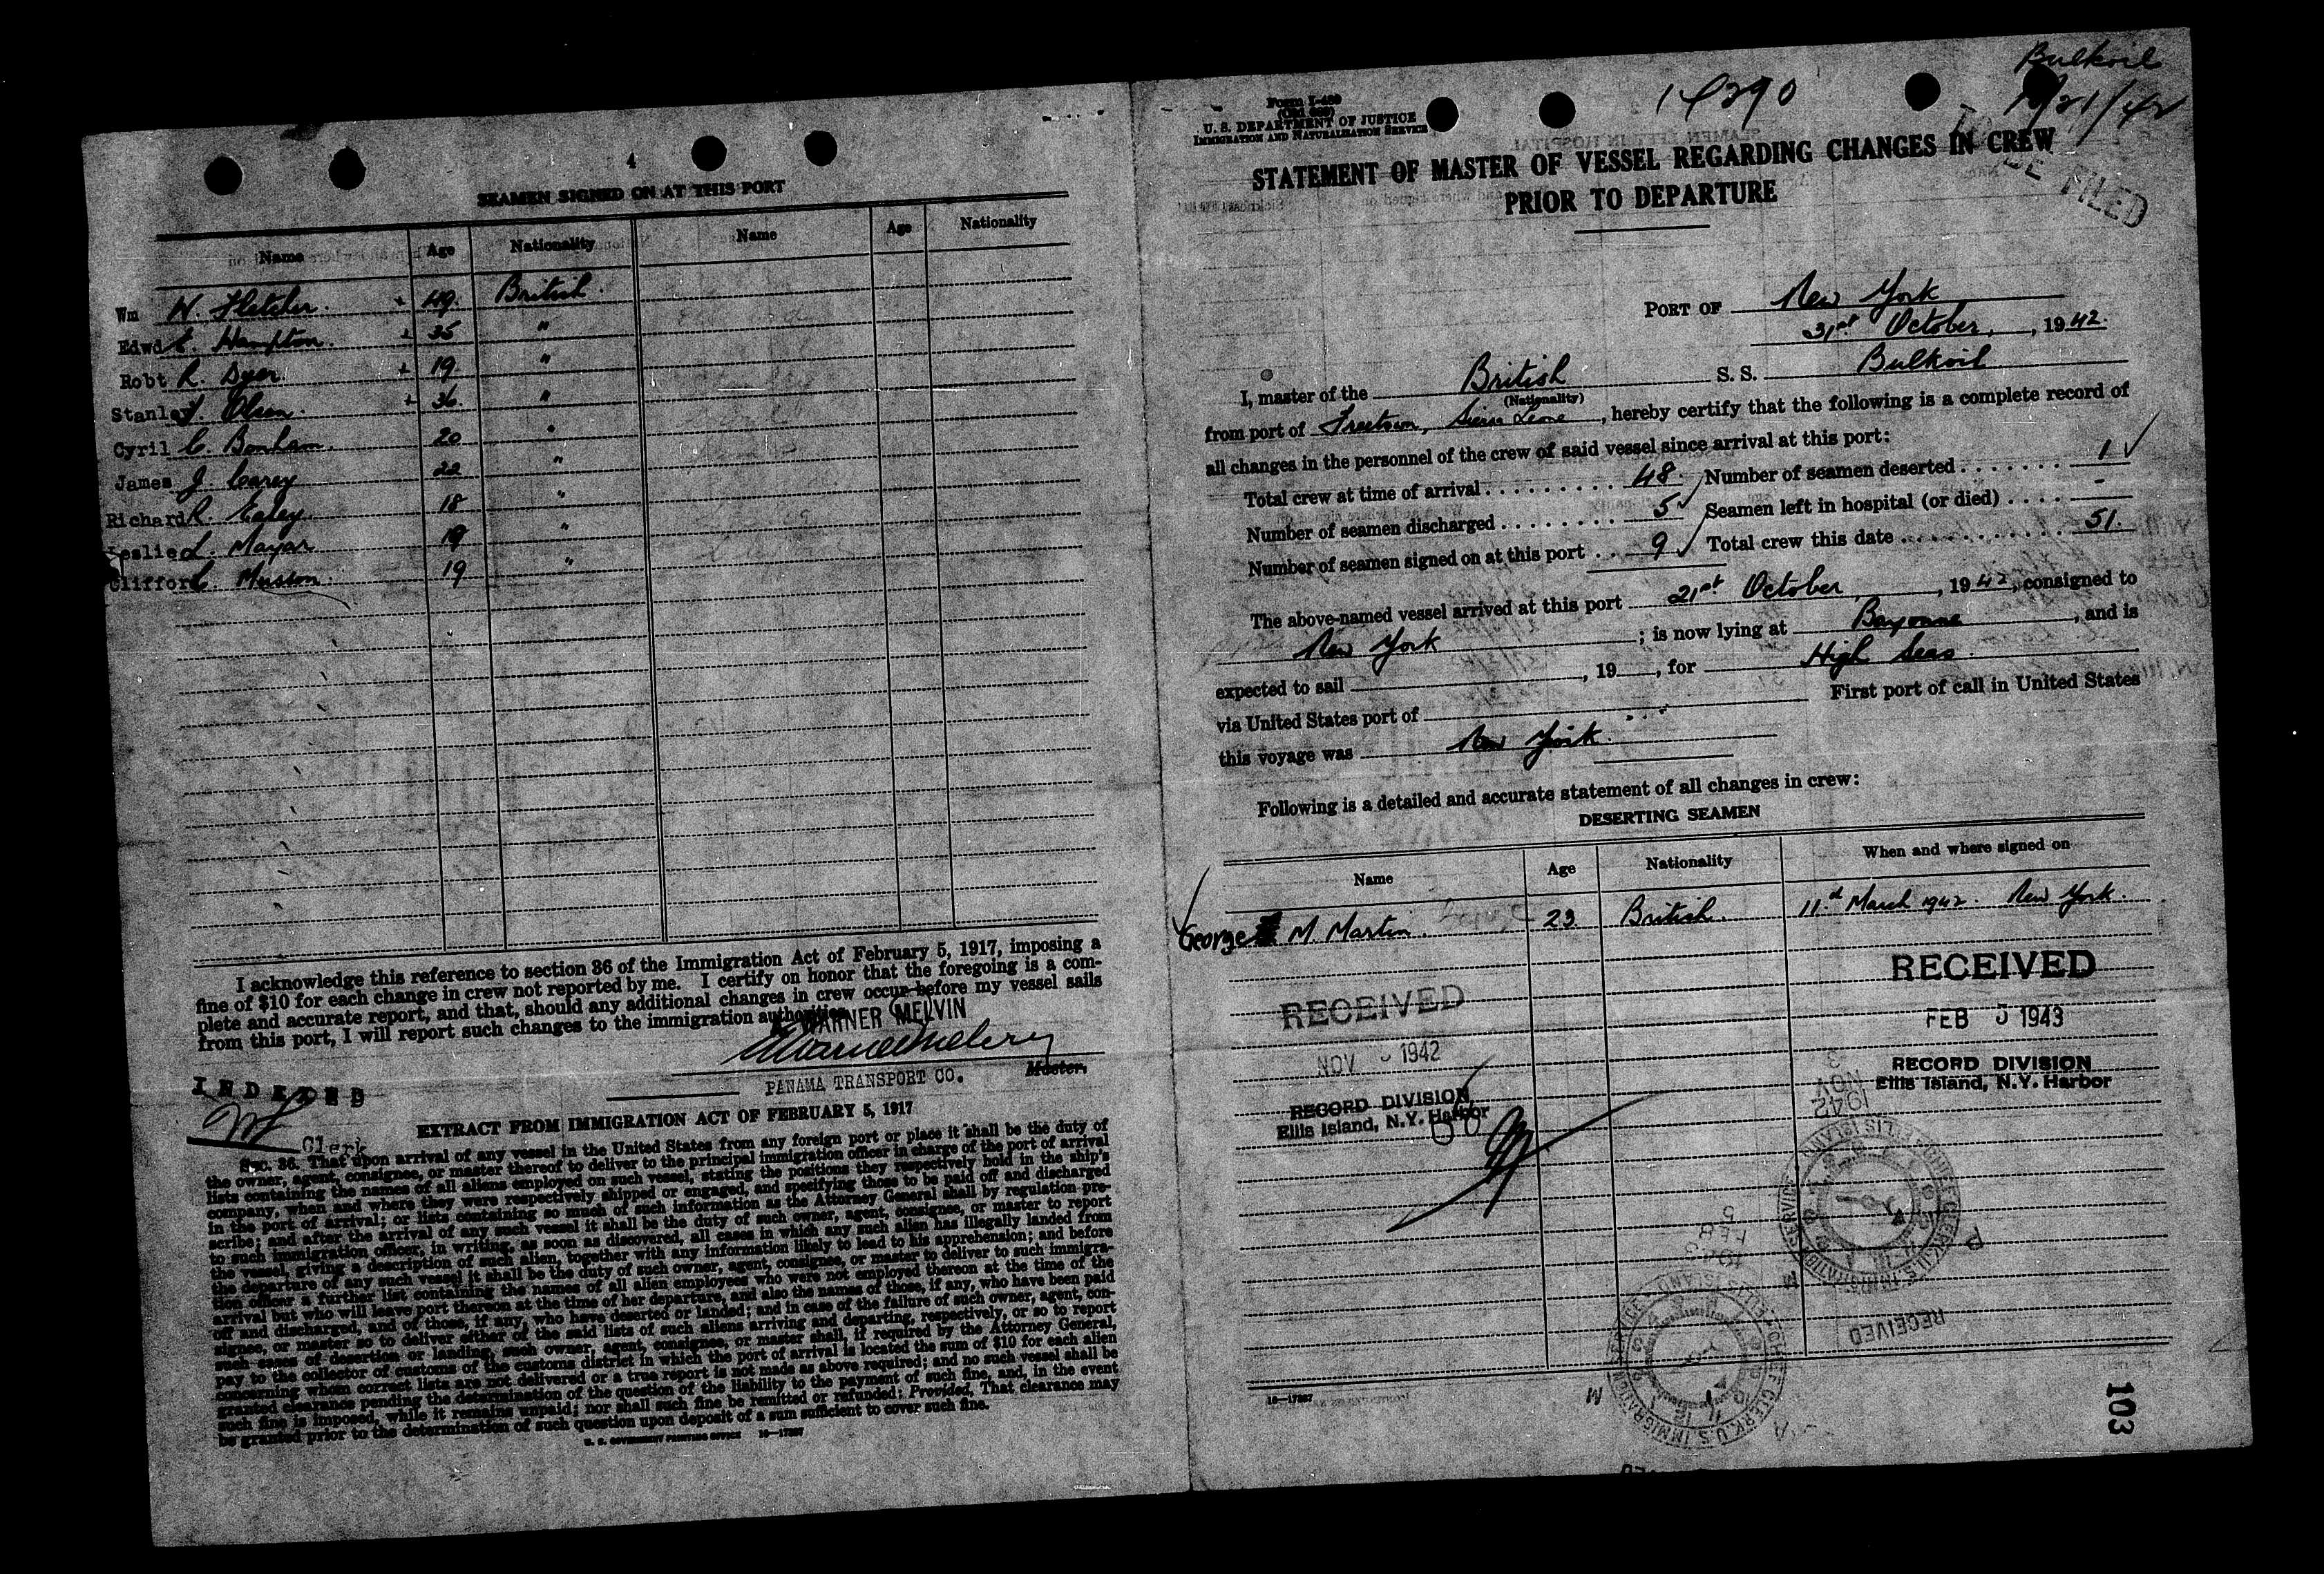 4
SEAMEN SIGNED ON AT THIS PORT
Name Age Nationality Name Age Nationality
Wm W. Fletcher. 49. British.
Edwd E. Hampton. 35 "
Robt R. Dyer. 19 "
Stanley S. Olsen. 36. "
Cyril C. Bonham. 20 "
James J. Carey 22 "
Richard R. Ealey 18 "
Leslie L. Mayar 19 "
Clifford C. Muston. 19 "
I acknowledge this reference to section 36 of the Immigration Act of February 5, 1917, imposing a
fine of $10 for each change in crew not reported by me. I certify on honor that the foregoing is a com-
plete and accurate report, and that, should any additional changes in crew occur before my vessel sails
from this port, I will report such changes to the immigration authorities.
WARNER MELVIN
Master.
PANAMA TRANSPORT CO.
INDEXED
Clerk
EXTRACT FROM IMMIGRATION ACT OF FEBRUARY 5, 1917
SEC. 36. That upon arrival of any vessel in the United States from any foreign port or place it shall be the duty of
the owner, agent, consignee, or master thereof to deliver to the principal immigration officer in charge of the port of arrival
lists containing the names of all aliens employed on such vessel, stating the positions they respectively hold in the ship's
company, when and where they were respectively shipped or engaged, and specifying those to be paid off and discharged
in the port of arrival; or lists containing so much of such information as the Attorney General shall by regulation pre-
scribe; and after the arrival of any such vessel it shall be the duty of such owner, agent, consignee, or master to report
to such immigration officer, in writing, as soon as discovered, all cases in which any such alien has illegally landed from
the vessel, giving a description of such alien, together with any information likely to lead to his apprehension; and before
the departure of any such vessel it shall be the duty of such owner, agent, consignee, or master to deliver to such immigra-
tion officer a further list containing the names of all alien employees who were not employed thereon at the time of the
arrival but who will leave port thereon at the time of her departure, and also the names of those, if any, who have been paid
off and discharged, and of those, if any, who have deserted or landed; and in case of the failure of such owner, agent, con-
signee, or master so to deliver either of the said lists of such aliens arriving and departing, respectively, or so to report
such cases of desertion or landing, such owner, agent, consignee, or master shall, if required by the Attorney General,
pay to the collector of customs of the customs district in which the port of arrival is located the sum of $10 for each alien
concerning whom correct lists are not delivered or a true report is not made as above required; and no such vessel shall be
granted clearance pending the determination of the question of the liability to the payment of such fine, and, in the event
such fine is imposed, while it remains unpaid; nor shall such fine be remitted or refunded: Provided, That clearance may
be granted prior to the determination of such question upon deposit of a sum sufficient to cover such fine.
U. S. GOVERNMENT PRINTING OFFICE 16—17387
Bulkoil
14290
TO BE FILED
U. S. DEPARTMENT OF JUSTICE
IMMIGRATION AND NATURALIZATION SERVICE
STATEMENT OF MASTER OF VESSEL REGARDING CHANGES IN CREW
PRIOR TO DEPARTURE
PORT OF New York
31st October, , 1942.
I, master of the British S. S. Bulkoil
(Nationality)
from port of Freetown, Sierra Leone , hereby certify that the following is a complete record of
all changes in the personnel of the crew of said vessel since arrival at this port:
Total crew at time of arrival 48. Number of seamen deserted 1
Number of seamen discharged 5 Seamen left in hospital (or died) -
Number of seamen signed on at this port 9 Total crew this date 51.
The above-named vessel arrived at this port 21st October , 1942, consigned to
New York ; is now lying at Bayonne , and is
expected to sail , 19 , for High Seas.
via United States port of First port of call in United States
this voyage was New York.
Following is a detailed and accurate statement of all changes in crew:
DESERTING SEAMEN
Name Age Nationality When and where signed on
George M Martin. 23. British. 11th March 1942. New York.
RECEIVED
NOV 1942
RECORD DIVISION
Ellis Island, N.Y. Harbor
RECEIVED
FEB 5 1943
RECORD DIVISION
Ellis Island, N.Y. Harbor
RECEIVED
16—17387
103